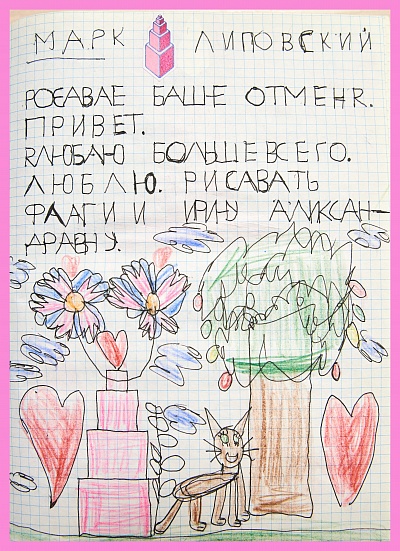 МАРК ЛИПОВСКИЙ
РОЗАВАЕ БАШНЕ ОТМЕНЯ.
ПРИВЕТ.
ЯЛЮБЛЮ БОЛЬШЕВСЕГО.
ЛЮБЛЮ. РИСАВАТЬ
ФЛАГИ И ИРИНУ АЛИКСАН-
ДРАВНУ.